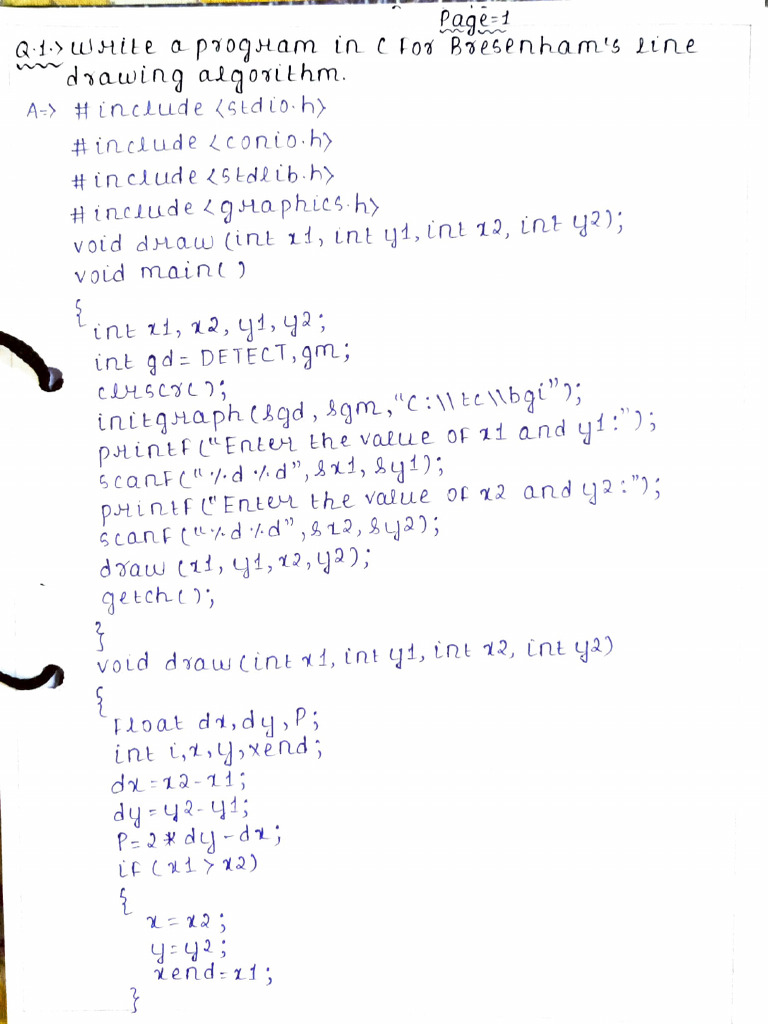 Page=1
Q.1.> Write a program in C for Bresenham's line
drawing algorithm.
A=> #include <stdio.h>
#include <conio.h>
#include <stdlib.h>
#include <graphics.h>
void draw (int x1, int y1, int x2, int y2);
void main()
{
int x1, x2, y1, y2;
int gd = DETECT, gm;
clrscr();
initgraph (&gd, &gm, "C:\\tc\\bgi");
printf ("Enter the value of x1 and y1:");
scanf ("%d %d", &x1, &y1);
printf ("Enter the value of x2 and y2:");
scanf ("%d %d", &x2, &y2);
draw (x1, y1, x2, y2);
getch();
}
void draw (int x1, int y1, int x2, int y2)
{
float dx, dy, P;
int i, x, y, xend;
dx = x2 - x1;
dy = y2 - y1;
P = 2 * dy - dx;
if (x1 > x2)
{
x = x2;
y = y2;
xend = x1;
}